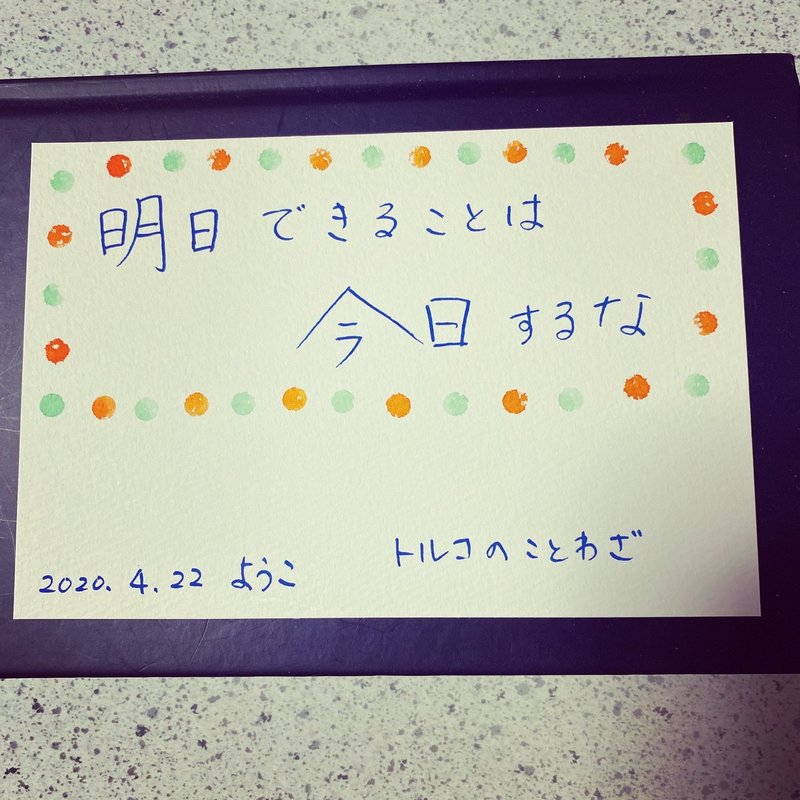 明日できることは
今日するな
トルコのことわざ
2020.4.22 ようこ